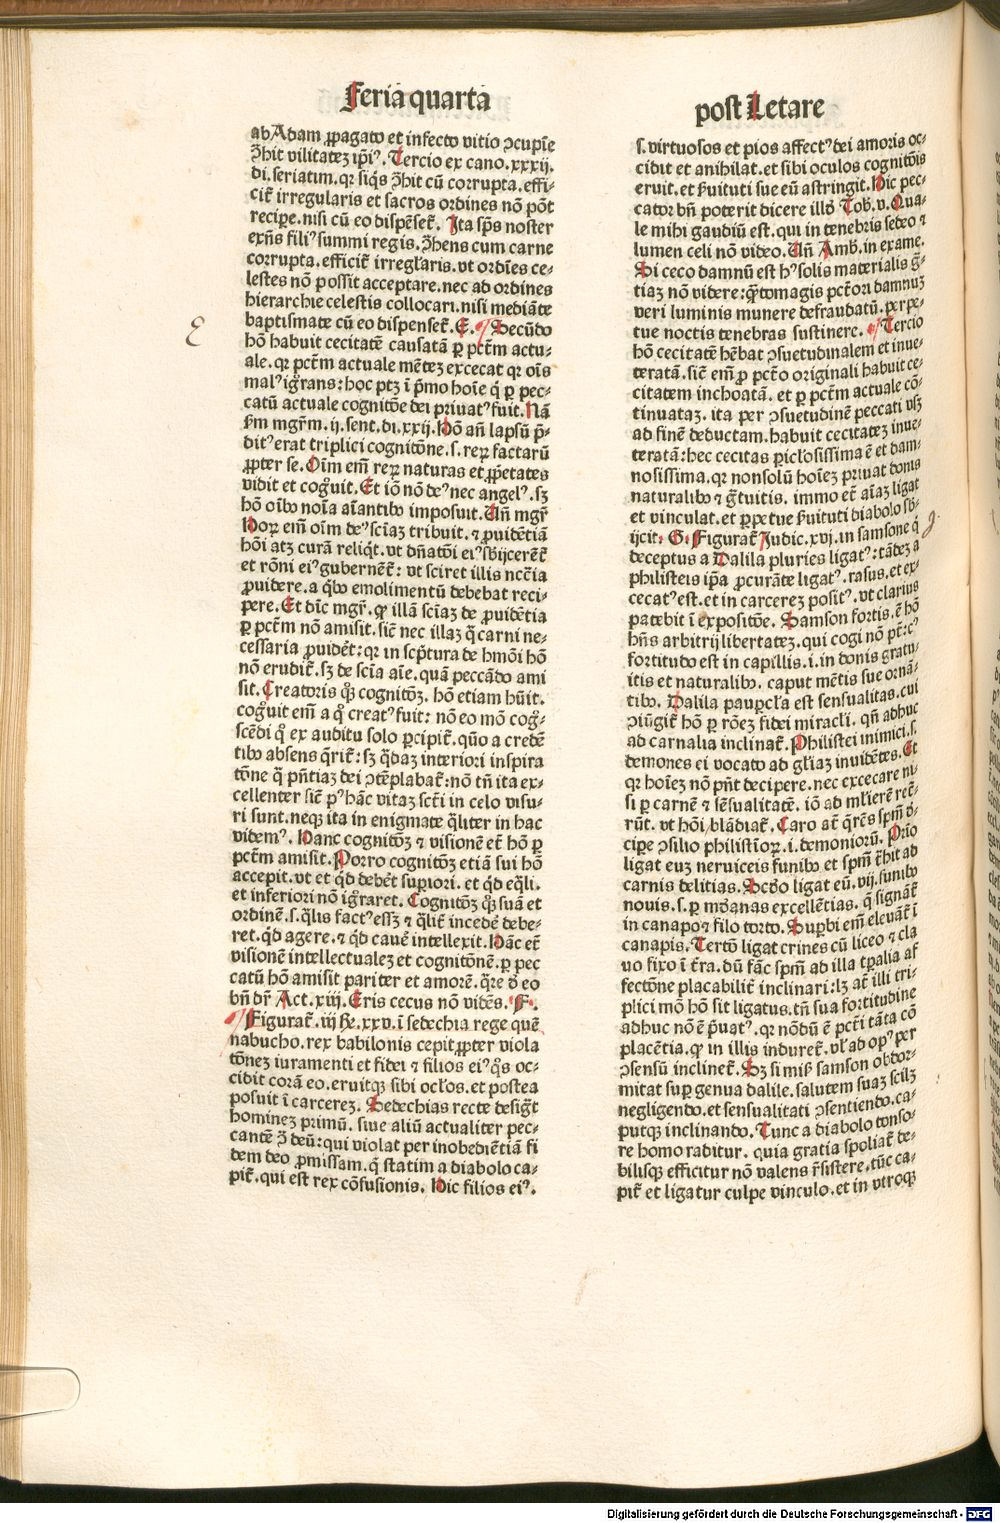 Feria quarta
post Letare
ab Adam ꝓpagato et infecto vitio ↄcupīe
Tercio ex cano. xxxij.
di. seriatim. qꝛ siq̄s cū corrupta. effi-
cit̃ irregularis et sacros ordines nō pōt
recipe. nisi cū eo dispēset̃. Ita sp̄s noster
exn̄s filiꝰ summi regis. cum carne
corrupta. efficit̃ irregl̄aris. vt ordīes ce-
lestes nō possit acceptare. nec ad ordines
hierarchie celestis collocari. nisi mediāte
baptismate cū eo dispenset̃. E. Secūdo
hō habuit cecitatē causatā ꝑ pctm̄ actu-
ale. qꝛ pctm̄ actuale mētez excecat qꝛ oīs
malꝰ igr̄ans: hoc ptꝫ ī p̄mo hoīe q̄ ꝑ pec-
catū actuale cognitōe dei priuatꝰ fuit. Nā
mgr̄m. ij. sent. di. xxij. Hō an̄ lapsū p̄-
ditꝰ erat triplici cognitōne. s. reꝝ factarū
ꝓpter se. Oīm em̄ reꝝ naturas et ꝓpetates
vidit et cogͦuit. Et iō nō deꝰ nec angelꝰ. sꝫ
hō oībꝰ noīa aīantibꝰ imposuit. Un̄ mgr̄
Hoꝝ em̄ oīm deꝰ scīaꝫ tribuit. ⁊ ꝓuidētiā
hōi atꝫ curā reliq̄t. vt dn̄atōi eiꝰ sb̄ijcerēt̃
et rōni eiꝰ gubernēt̃: vt sciret illis ncc̄ia
ꝓuidere. a qͥbꝰ emolimentū debebat reci-
pere. Et dīc mgr̄. ꝙ illā scīaꝫ de ꝓuidētia
ꝑ pctm̄ nō amisit. sic̄ nec illaꝫ q̄ carni ne-
cessaria ꝓuidēt: qꝛ in scpͥtura de hmōi hō
nō erudit̃. sꝫ de scīa aīe. quā peccādo ami
sit. Creatoris qͦꝫ cognitōꝫ. hō etiam hūit.
cogͦuit em̄ a qͦ creatꝰ fuit: nō eo mō cogͦ-
scēdi qͦ ex auditu solo ꝑcipit̃. qūo a credē
tibꝰ absens q̄rit̃: sꝫ q̄daꝫ interiori inspira
tōne q̄ pn̄tiaꝫ dei ↄtēplabat̃: nō tn̄ ita ex-
cellenter sic̄ pꝰ hāc vitaꝫ scti in celo visu-
ri sunt. neqꝫ ita in enigmate q̄liter in hac
videmꝰ. Hanc cognitōꝫ ⁊ visionē et̄ hō ꝑ
pctm̄ amisit. Porro cognitōꝫ etiā sui hō
accepit. vt et qd̄ debēt supiori. et qd̄ eq̄li.
et inferiori nō igr̄aret. Cognitōꝫ qͦꝫ suā et
ordinē. s. q̄lis factꝰ essꝫ ⁊ q̄lit̃ incedē debe-
ret. qd̄ agere. ⁊ qd̄ cauē intellexit. Hāc et̄
visionē intellectualeꝫ et cognitōnē. ꝑ pec
catū hō amisit pariter et amorē. q̄re dͦ eo
bn̄ dr̄ Act. xiij. Eris cecus nō vidēs. F.
Figurat̃. iiij Re. xxv. ī sedechia rege quē
nabucho. rex babilonis cepit ꝓpter viola
tōneꝫ iuramenti et fidei ⁊ filios eiꝰ qͦs oc-
cidit corā eo. eruitqꝫ sibi ocl̄os. et postea
posuit ī carcereꝫ. Sedechias recte desigͣt
hominez primū. siue aliū actualiter pec-
cantē deū: qui violat per inobediētiā fi
dem deo ꝓmissam. q̄ statim a diabolo ca-
pit̃. qui est rex cōfusionis. Hic filios eiꝰ.
s. virtuosos et pios affectꝰ dei amoris oc-
cidit et anihilat. et sibi oculos cognitōis
eruit. et ẜuituti sue eū astringit. Hic pec-
cator bn̄ poterit dicere illd̄ Tob. v. Qua-
le mihi gaudiū est. qui in tenebris sedeo ⁊
lumen celi nō video. Un̄ Amb. in exame.
Si ceco damnū est hꝰ solis materialis gͣ-
tiaꝫ nō videre: q̄ntomagis pctōri damnuꝫ
veri luminis munere defraudatū. perpe-
tue noctis tenebras sustinere. Tercio
hō cecitatē hēbat ↄsuetudinalem et inue-
teratā. sic̄ em̄ ꝓ pctō originali habuit ce-
citatem inchoatā. et ꝑ pctm̄ actuale cō-
tinuataꝫ. ita per ↄsuetudinē peccati vsꝫ
ad finē deductam. habuit cecitateꝫ inue-
teratā: hec cecitas ꝑicl̄osissima ē et dam-
nosissima. qꝛ nonsolū hoīeꝫ priuat donis
naturalibꝰ ⁊ gͣtuitis. immo et̄ aīaꝫ ligat
et vinculat. et ꝑpetue ẜuituti diabolo sb̄-
ijcit. G. Figurat̃ Judic. xvj. in samsone q̄
deceptus a Dalila pluries ligatꝰ: tādeꝫ a
philisteis ip̄a ꝓcurāte ligatꝰ. rasus. et ex-
cecatꝰ est. et in carcereꝫ positꝰ. vt clarius
patebit ī expositōe. Samson fortis. ē hō
hn̄s arbitrij libertateꝫ. qui cogi nō pōt: cꝰ
fortitudo est in capillis. i. in donis gratu-
itis et naturalibꝰ. caput mētis sue ornā-
tibꝰ. Dalila paupcl̄a est sensualitas. cui
ↄiūgit̃ hō ꝑ rōeꝫ fidei miracl̄i. qn̄ adhuc
ad carnalia inclinat̃. Philistei inimici. s.
demones ei vocato ad gl̄iaꝫ inuidētes. Et
qꝛ hoīeꝫ nō pn̄t decipere. nec excecare ni-
si ꝑ carnē ⁊ sēsualitatē. iō ad ml̄ierē recͣ-
rūt. vt hōi blādiat̃. Caro at̄ q̄rēs spm̄
cipe ↄsilio philistioꝝ. i. demoniorū. Prīo
ligat euꝫ neruiceis funibꝰ et spm̄ tͣhit ad
carnis delitias. Scd̄o ligat eū. vij. funibꝰ
nouis. s. ꝑ mūdanas excellētias. q̄ signāt̃
in canapo ⁊ filo torto. Supbi em̄ eleuāt̃ ī
canapis. Tertō ligat crines cū liceo ⁊ cla
uo fixo ī t̃ra. dū fāc spm̄ ad illa tꝑalia af
fectōne placabilit̃ inclinari: lꝫ at̄ illi tri-
plici mō hō sit ligatus. tn̄ sua fortitudine
adhuc nō ē p̄uatꝰ. qꝛ nōdū ē pcti tāta cō
placētia. ꝙ in illis induret̃. vl̄ ad opꝰ per
ↄsensū inclinet̃. Sꝫ si misꝫ samson obdor-
mitat sup genua dalile. salutem suaꝫ scilꝫ
negligendo. et sensualitati ↄsentiendo. ca-
putqꝫ inclinando. Tunc a diabolo tonso-
re homo raditur. quia gratia spoliat̃ de-
bilisqꝫ efficitur nō valens r̄sistere. tūc ca-
pit̃ et ligatur culpe vinculo. et in vtroqꝫ
E
g.
Digitalisierung gefördert durch die Deutsche Forschungsgemeinschaft - DFG